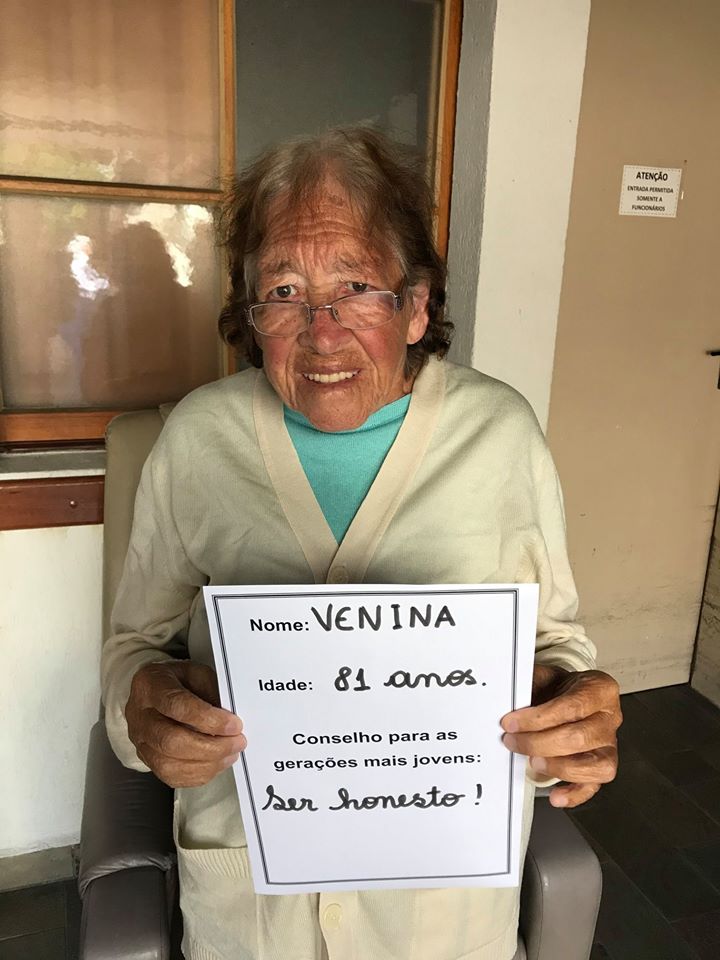 ATENÇÃO
ENTRADA PERMITIDA
SOMENTE A
FUNCIONÁRIOS
Nome: VENINA
Idade: 81 anos.
Conselho para as
gerações mais jovens:
Ser honesto!